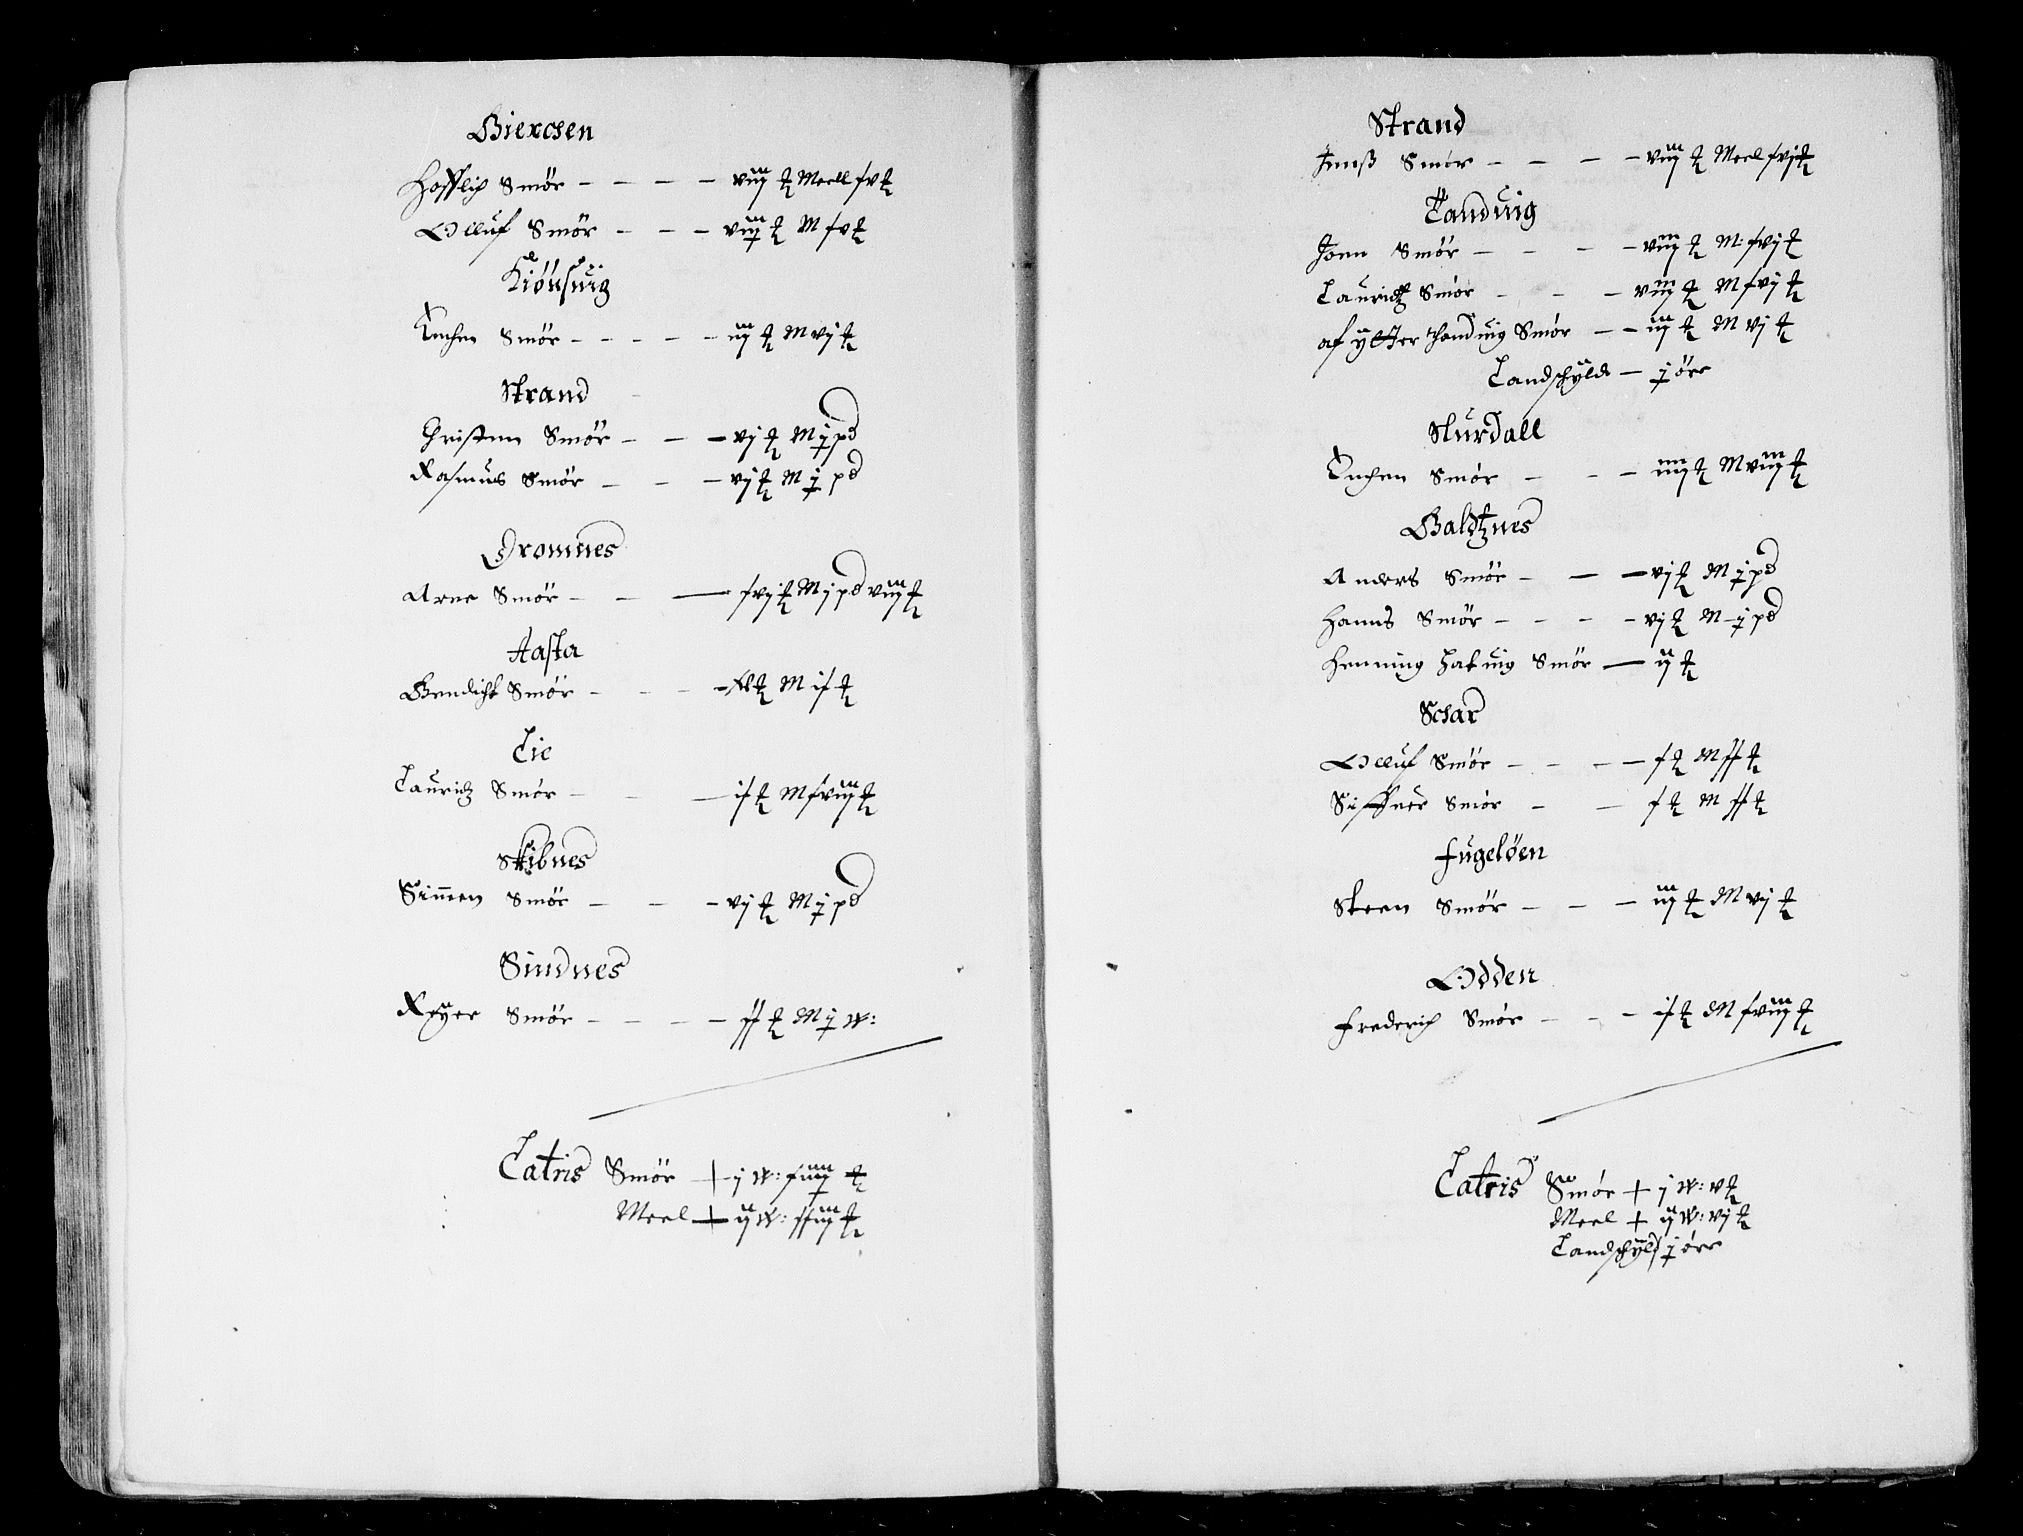 Bierosen
Hofflich Smör - - - - viij ℔ Meell xv ℔
Olluf Smör - - - viij ℔ M xv ℔
Kiönsuig
Enchen Smör - - - - - iij ℔ M vj ℔
Strand
Christen Smör - - - vj ℔ M j pd
Rasmus Smör - - - vj ℔ M j pd
Dromnes
Arne Smör - - - xvj ℔ M j pd viij ℔
Aasta
Bendicht Smör - - - - ℔ M ix ℔
Lie
Lauritz Smör - - - ix ℔ M xviij ℔
Skibnes
Simen Smör - - - vj ℔ M j pd
Sindnes
Reÿer Smör - - - - xx ℔ M j W:
Latris Smör + j W: xiiij ℔
Meel + ij W: xxiij ℔
Strand
Jens Smör - - - - viij ℔ Meel xvj ℔
Tanduig
Joen Smör - - - - viij ℔ M: xvj ℔
Lauridtz Smör - - - viij ℔ M xvj ℔
af ÿtter thanduig Smör - - iij ℔ M vj ℔
Landschÿld - j öre
Nurdall
Enchen Smör - - - iiij ℔ M viij ℔
Baldtznes
Anders Smör - - - vj ℔ M j pd
Hanns Smör - - - - vj ℔ M j pd
Henning Hatuig Smör - ij ℔
Schar
Olluf Smör - - - - x ℔ M xx ℔
Siffuer Smör - - x ℔ M xx ℔
Fugelöen
Steen Smör - - - iij ℔ M vj ℔
Odden
Frederich Smör - - - ix ℔ M xviij ℔
Latris Smör + j W: v ℔
Meel + ij W: vj ℔
Landschÿld j öre